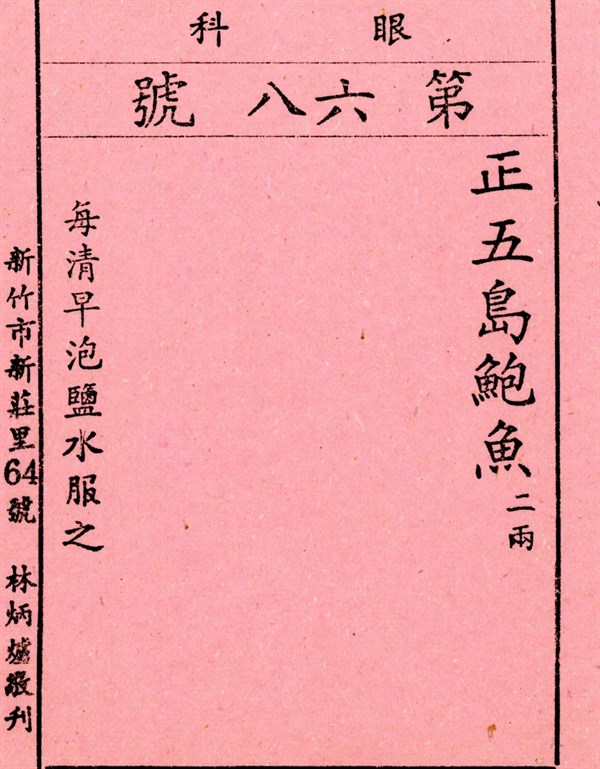 眼科
第六八號
正五島鮑魚二兩
每清早泡鹽水服之
新竹市新莊里64號 林炳爐敬刊